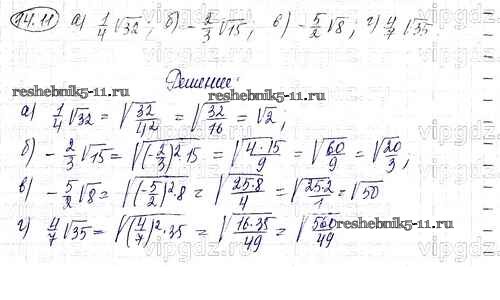 14.11 а) 1/4 √32; б) -2/3 √15; в) -5/2 √8; г) 4/7 √35
Решение:
reshebnik5-11.ru reshebnik5-11.ru
а) 1/4 √32 = √(32/4²) = √(32/16) = √2;
б) -2/3 √15 = √((-2/3)² 15) = √(4·15/9) = √(60/9) = √(20/3);
в) -5/2 √8 = √((-5/2)²·8) = √(25·8/4) = √(25·2/1) = √50
г) 4/7 √35 = √((4/7)²·35) = √(16·35/49) = √(560/49)
reshebnik5-11.ru
vipgdz.com